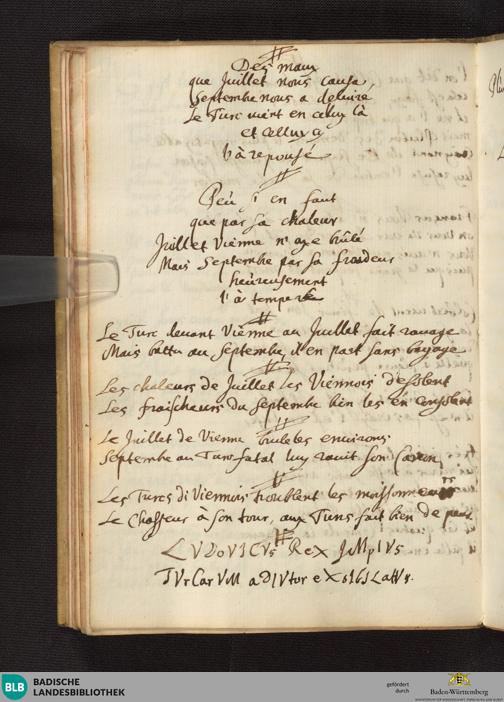 Des maux
que Juillet nous causa,
Septembre nous a delivré
Le Turc vient en celuy là
et celluy cy
l'à repoussé
Peu s'en faut
que par sa chaleur
Juillet Vienne n'aye brûlé
Mais Septembre par sa froideur
heureusement
l'à temperée
Le Turc devant Vienne au Juillet fait ravage
Mais battu au Septembre, il en part sans bagage
Les chaleurs de Juillet les Viennois desolent
Les fraischeurs du Septembre bien les en consolent
Le Juillet de Vienne brule les environs
Septembre au Turc fatal luy ravit son
Les Turcs di Viennois troublent les moissonneurs
Le Chasseur à son tour, aux Turcs fait bien de peur
LVDoVICVs Rex IMpIVs
TVrCarVM aDIVtor eXsIbILatVs.
BLB BADISCHE
LANDESBIBLIOTHEK
gefördert
durch
Baden-Württemberg